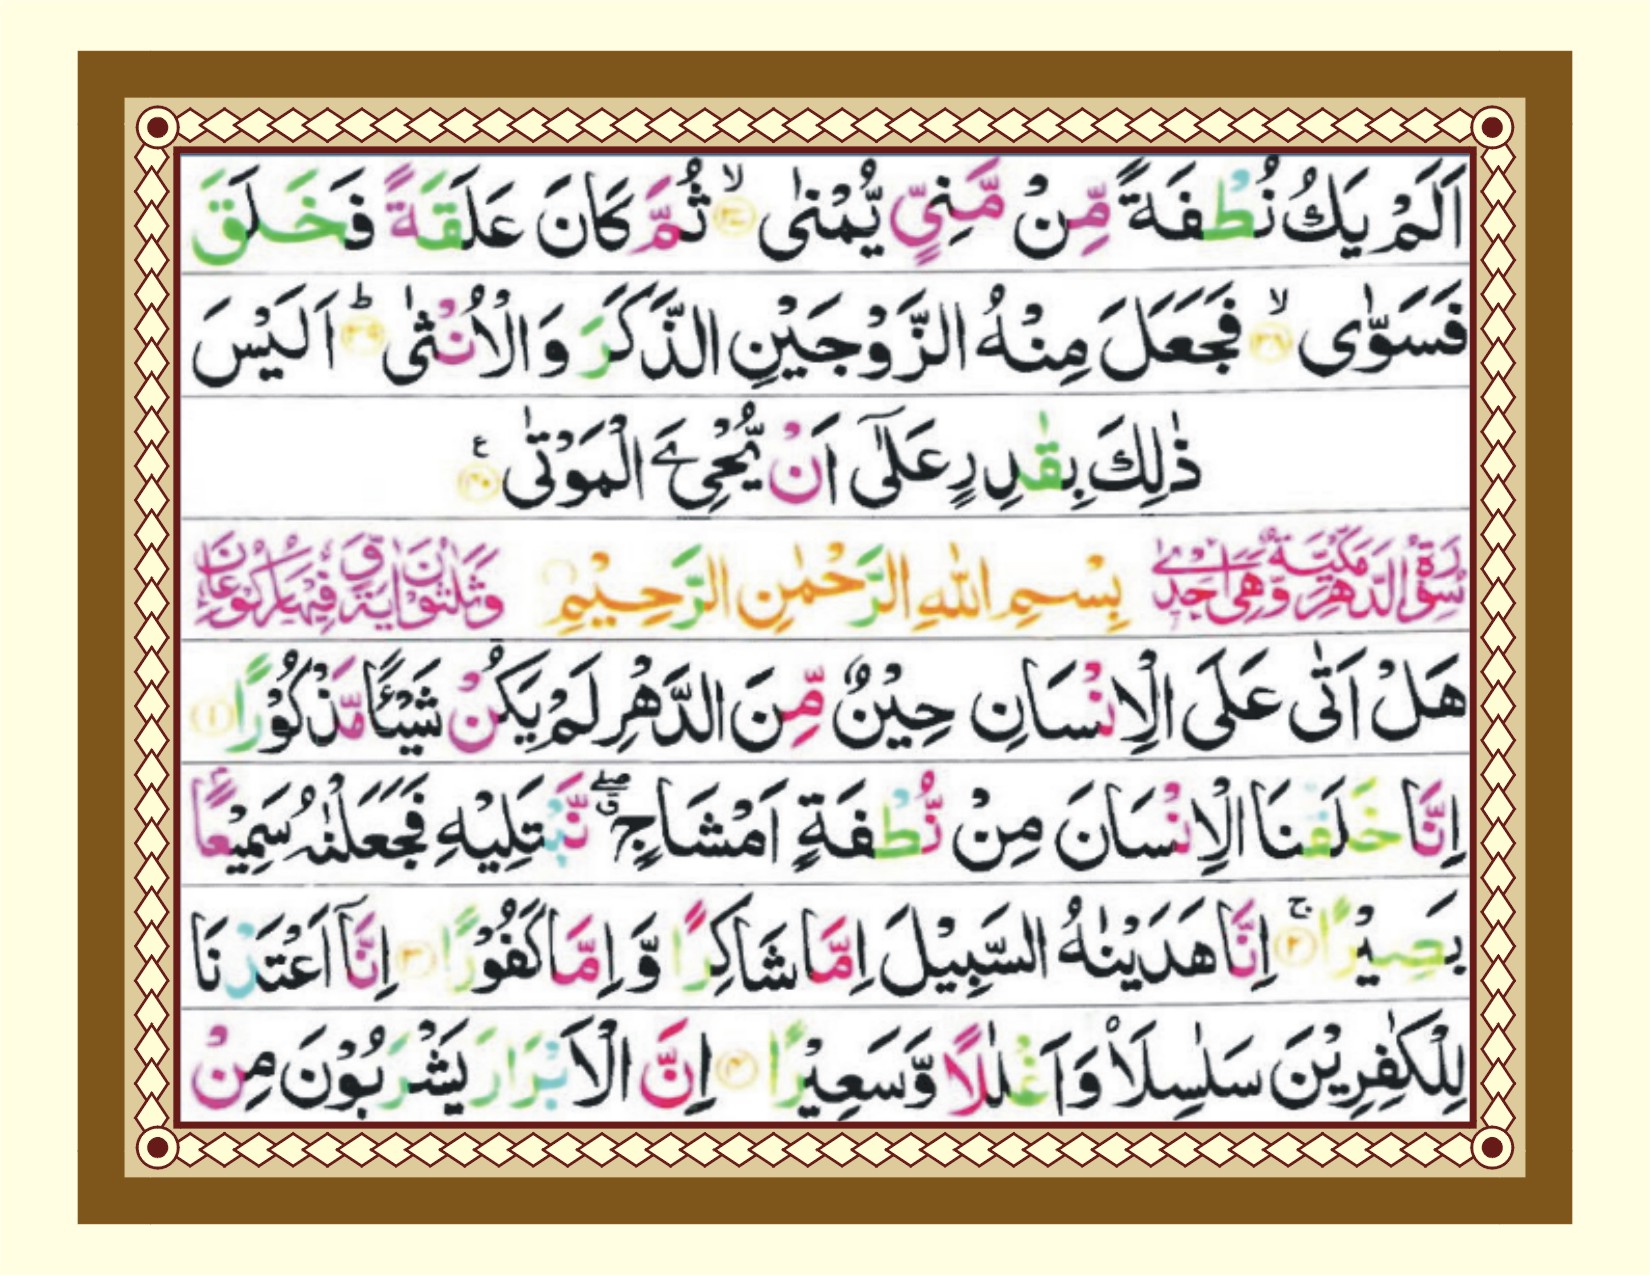 اَلَمْ يَكُ نُطْفَةً مِّنْ مَّنِيٍّ يُّمْنٰى ۙ‏﴿۳۷﴾ ثُمَّ كَانَ عَلَقَةً فَخَلَقَ
فَسَوّٰى ۙ‏﴿۳۸﴾ فَجَعَلَ مِنْهُ الزَّوْجَيْنِ الذَّكَرَ وَ الْاُنْثٰى ؕ‏﴿۳۹﴾ اَلَيْسَ
ذٰلِكَ بِقٰدِرٍ عَلٰٓى اَنْ يُّحْيِۦَ الْمَوْتٰى ‏﴿۴۰﴾ ع
سُوْرَةُ الدَّهْرِ مَكِّيَّةٌ وَّهِىَ اِحْدٰى بِسْمِ اللّٰهِ الرَّحْمٰنِ الرَّحِيْمِ وَثَلٰثُوْنَ اٰيَةً وَّفِيْهَا رُكُوْعَانِ
هَلْ اَتٰى عَلَى الْاِنْسَانِ حِيْنٌ مِّنَ الدَّهْرِ لَمْ يَكُنْ شَيْئًا مَّذْكُوْرًا ‏﴿۱﴾
اِنَّا خَلَقْنَا الْاِنْسَانَ مِنْ نُّطْفَةٍ اَمْشَاجٍ ۖۗ نَّبْتَلِيْهِ فَجَعَلْنٰهُ سَمِيْعًا
بَصِيْرًا ۚ‏﴿۲﴾ اِنَّا هَدَيْنٰهُ السَّبِيْلَ اِمَّا شَاكِرًا وَّ اِمَّا كَفُوْرًا ‏﴿۳﴾ اِنَّآ اَعْتَدْنَا
لِلْكٰفِرِيْنَ سَلٰسِلَا۟ وَ اَغْلٰلًا وَّسَعِيْرًا ‏﴿۴﴾ اِنَّ الْاَبْرَارَ يَشْرَبُوْنَ مِنْ